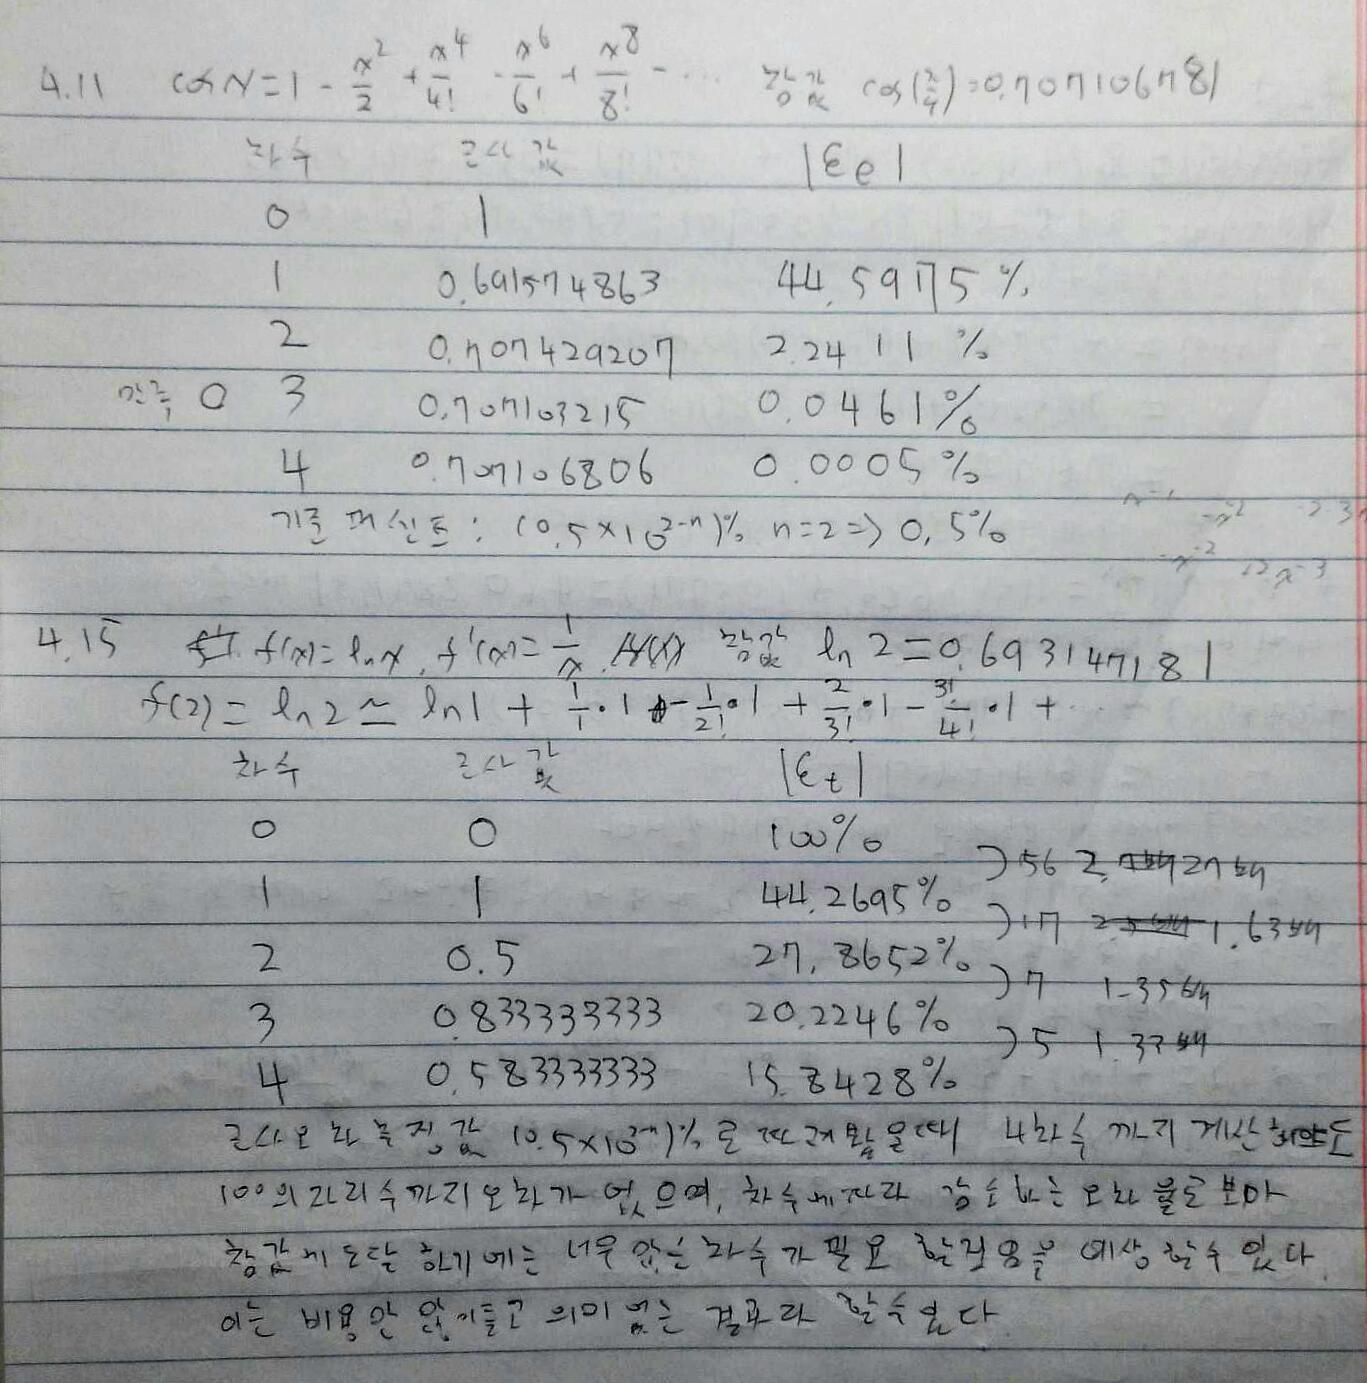 4.11 cos x = 1 - x²/2 + x⁴/4! - x⁶/6! + x⁸/8! - ... 참값 cos(π/4) = 0.707106781
차수 근사값 |εe|
0 1
1 0.691574863 44.5975%
2 0.707429207 2.2411%
만족 O 3 0.707103215 0.0461%
4 0.707106806 0.0005%
기준 퍼센트 : (0.5×10²⁻ⁿ)% n=2 => 0.5%
4.15 f(x) = ln x, f'(x) = 1/x 참값 ln 2 = 0.693147181
f(2) = ln 2 ≃ ln 1 + 1/1·1 - 1/2!·1 + 2/3!·1 - 3!/4!·1 + ...
차수 근사값 |εt|
0 0 100%
)56 2.27배
1 1 44.2695%
)17 1.63배
2 0.5 27.8652%
)7 1.35배
3 0.833333333 20.2246%
)5 1.33배
4 0.583333333 15.8428%
근사오차 측정값 (0.5×10²⁻ⁿ)%로 따져봤을때 4차수 까지 계산해도
100의 자리수까지 오차가 없으며, 차수에따라 감소하는 오차 율로보아
참값에 도달 하기에는 너무 많은 차수가 필요 할것임을 예상할수 있다.
이는 비용만 많이들고 의미없는 결과라 할수있다